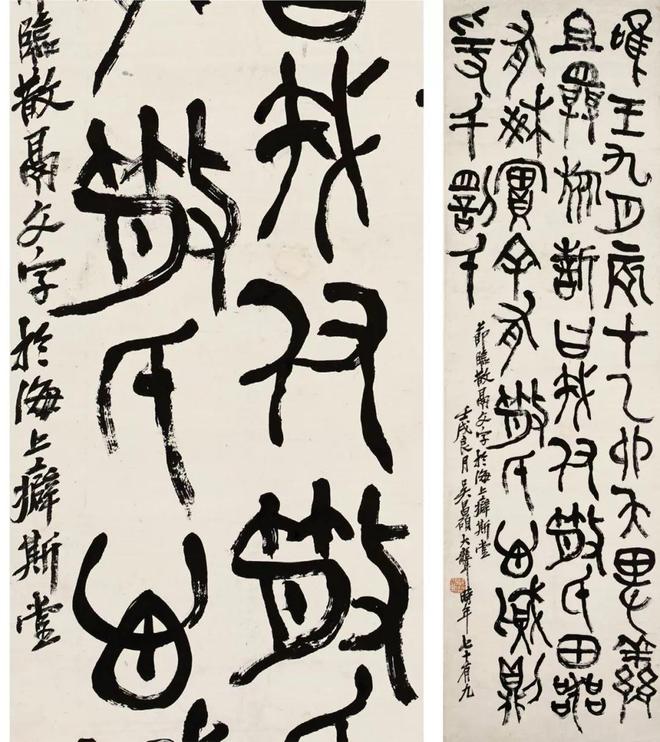 曰我付散氏
有散氏心
臨散鬲文字於海上癖斯堂
唯王九月辰十乙卯矢卑
且旅誓曰我付散氏田器
有爽實余有散氏心賊則
爰千罰千
節臨散鬲文字於海上癖斯堂
壬戌良月吳昌碩大聾時年七十有九